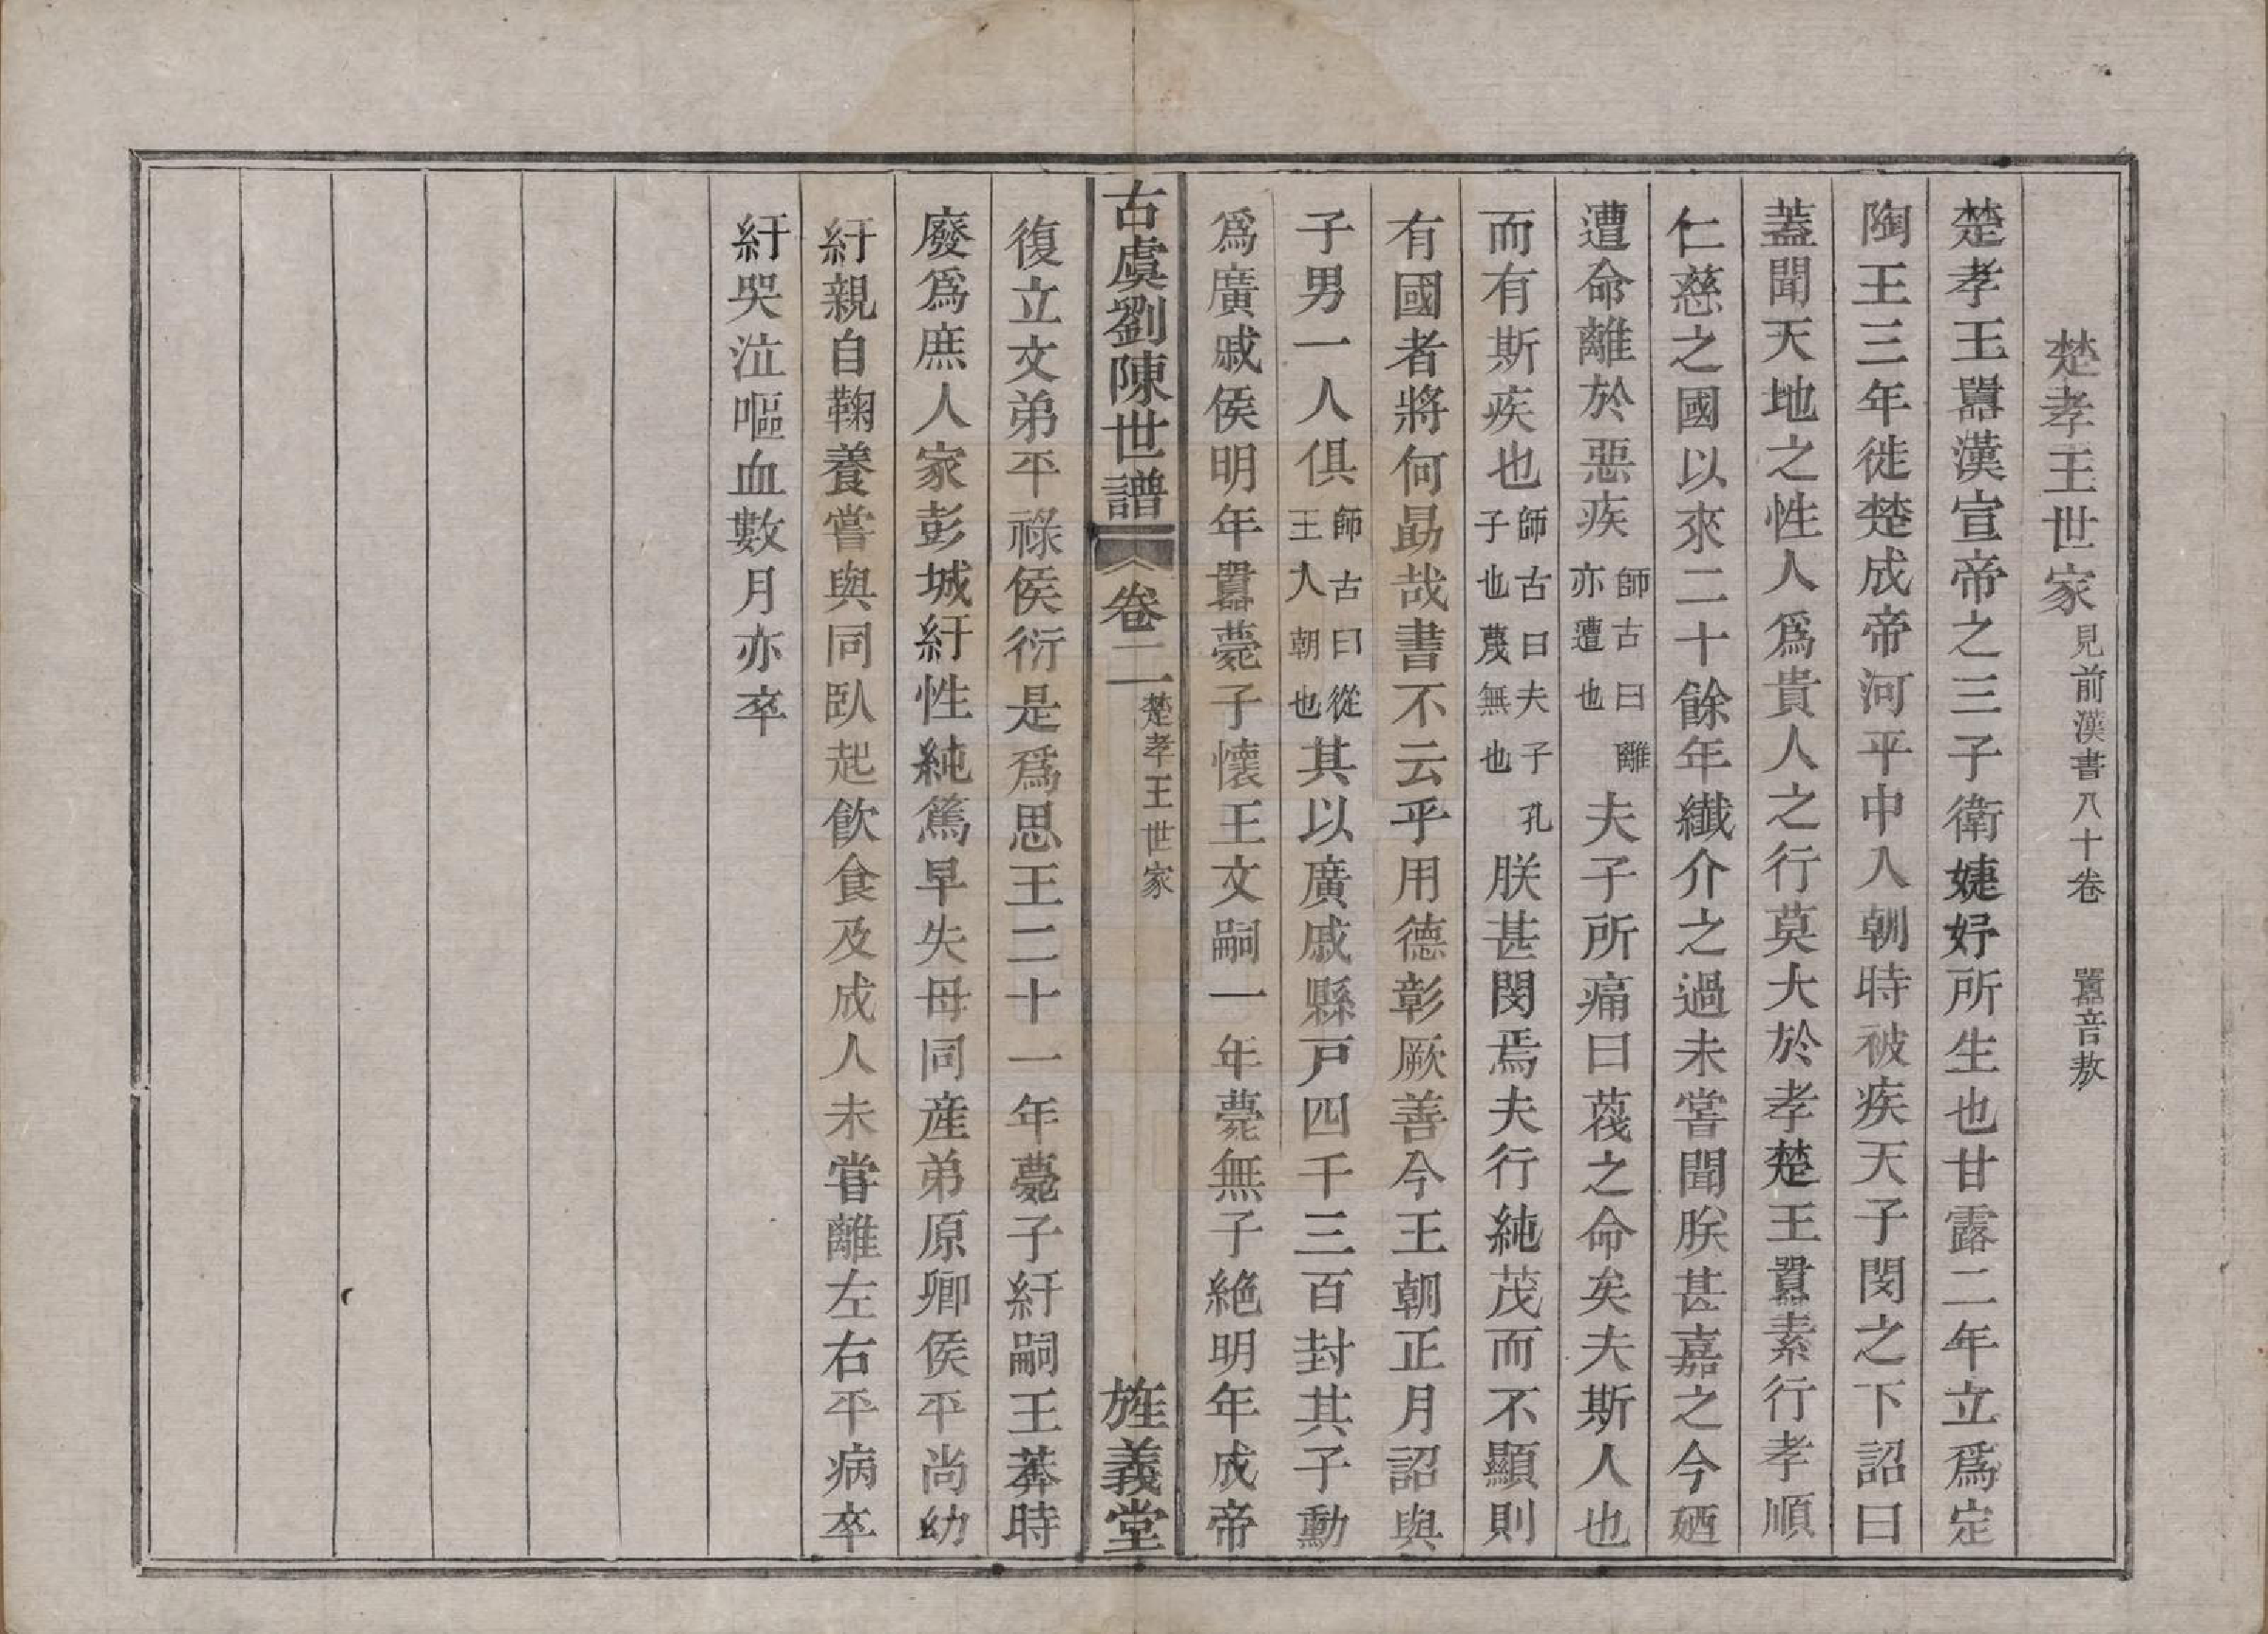 楚孝王世家見前漢書八十卷 囂音敖
楚孝王囂漢宣帝之三子衛婕妤所生也甘露二年立爲定
陶王三年徙楚成帝河平中入朝時被疾天子閔之下詔曰
蓋聞天地之性人爲貴人之行莫大於孝楚王囂素行孝順
仁慈之國以來二十餘年纎介之過未嘗聞朕甚嘉之今廼
遭命離於惡疾師古曰離亦遭也夫子所痛曰蔑之命矣夫斯人也
而有斯疾也師古曰夫子孔子也蔑無也朕甚閔焉夫行純茂而不顯則
有國者將何勗哉書不云乎用德彰厥善今王朝正月詔與
子男一人俱師古曰從王人朝也其以廣戚縣戸四千三百封其子勳
爲廣戚侯明年囂薨子懷王文嗣一年薨無子絶明年成帝
古虞劉陳世譜 卷二 楚孝王世家 旌義堂
復立文弟平祿侯衍是爲思王二十一年薨子紆嗣王莽時
廢爲庶人家彭城紆性純篤早失母同産弟原卿侯平尚幼
紆親自鞠養嘗與同臥起飲食及成人未嘗離左右平病卒
紆哭泣嘔血數月亦卒